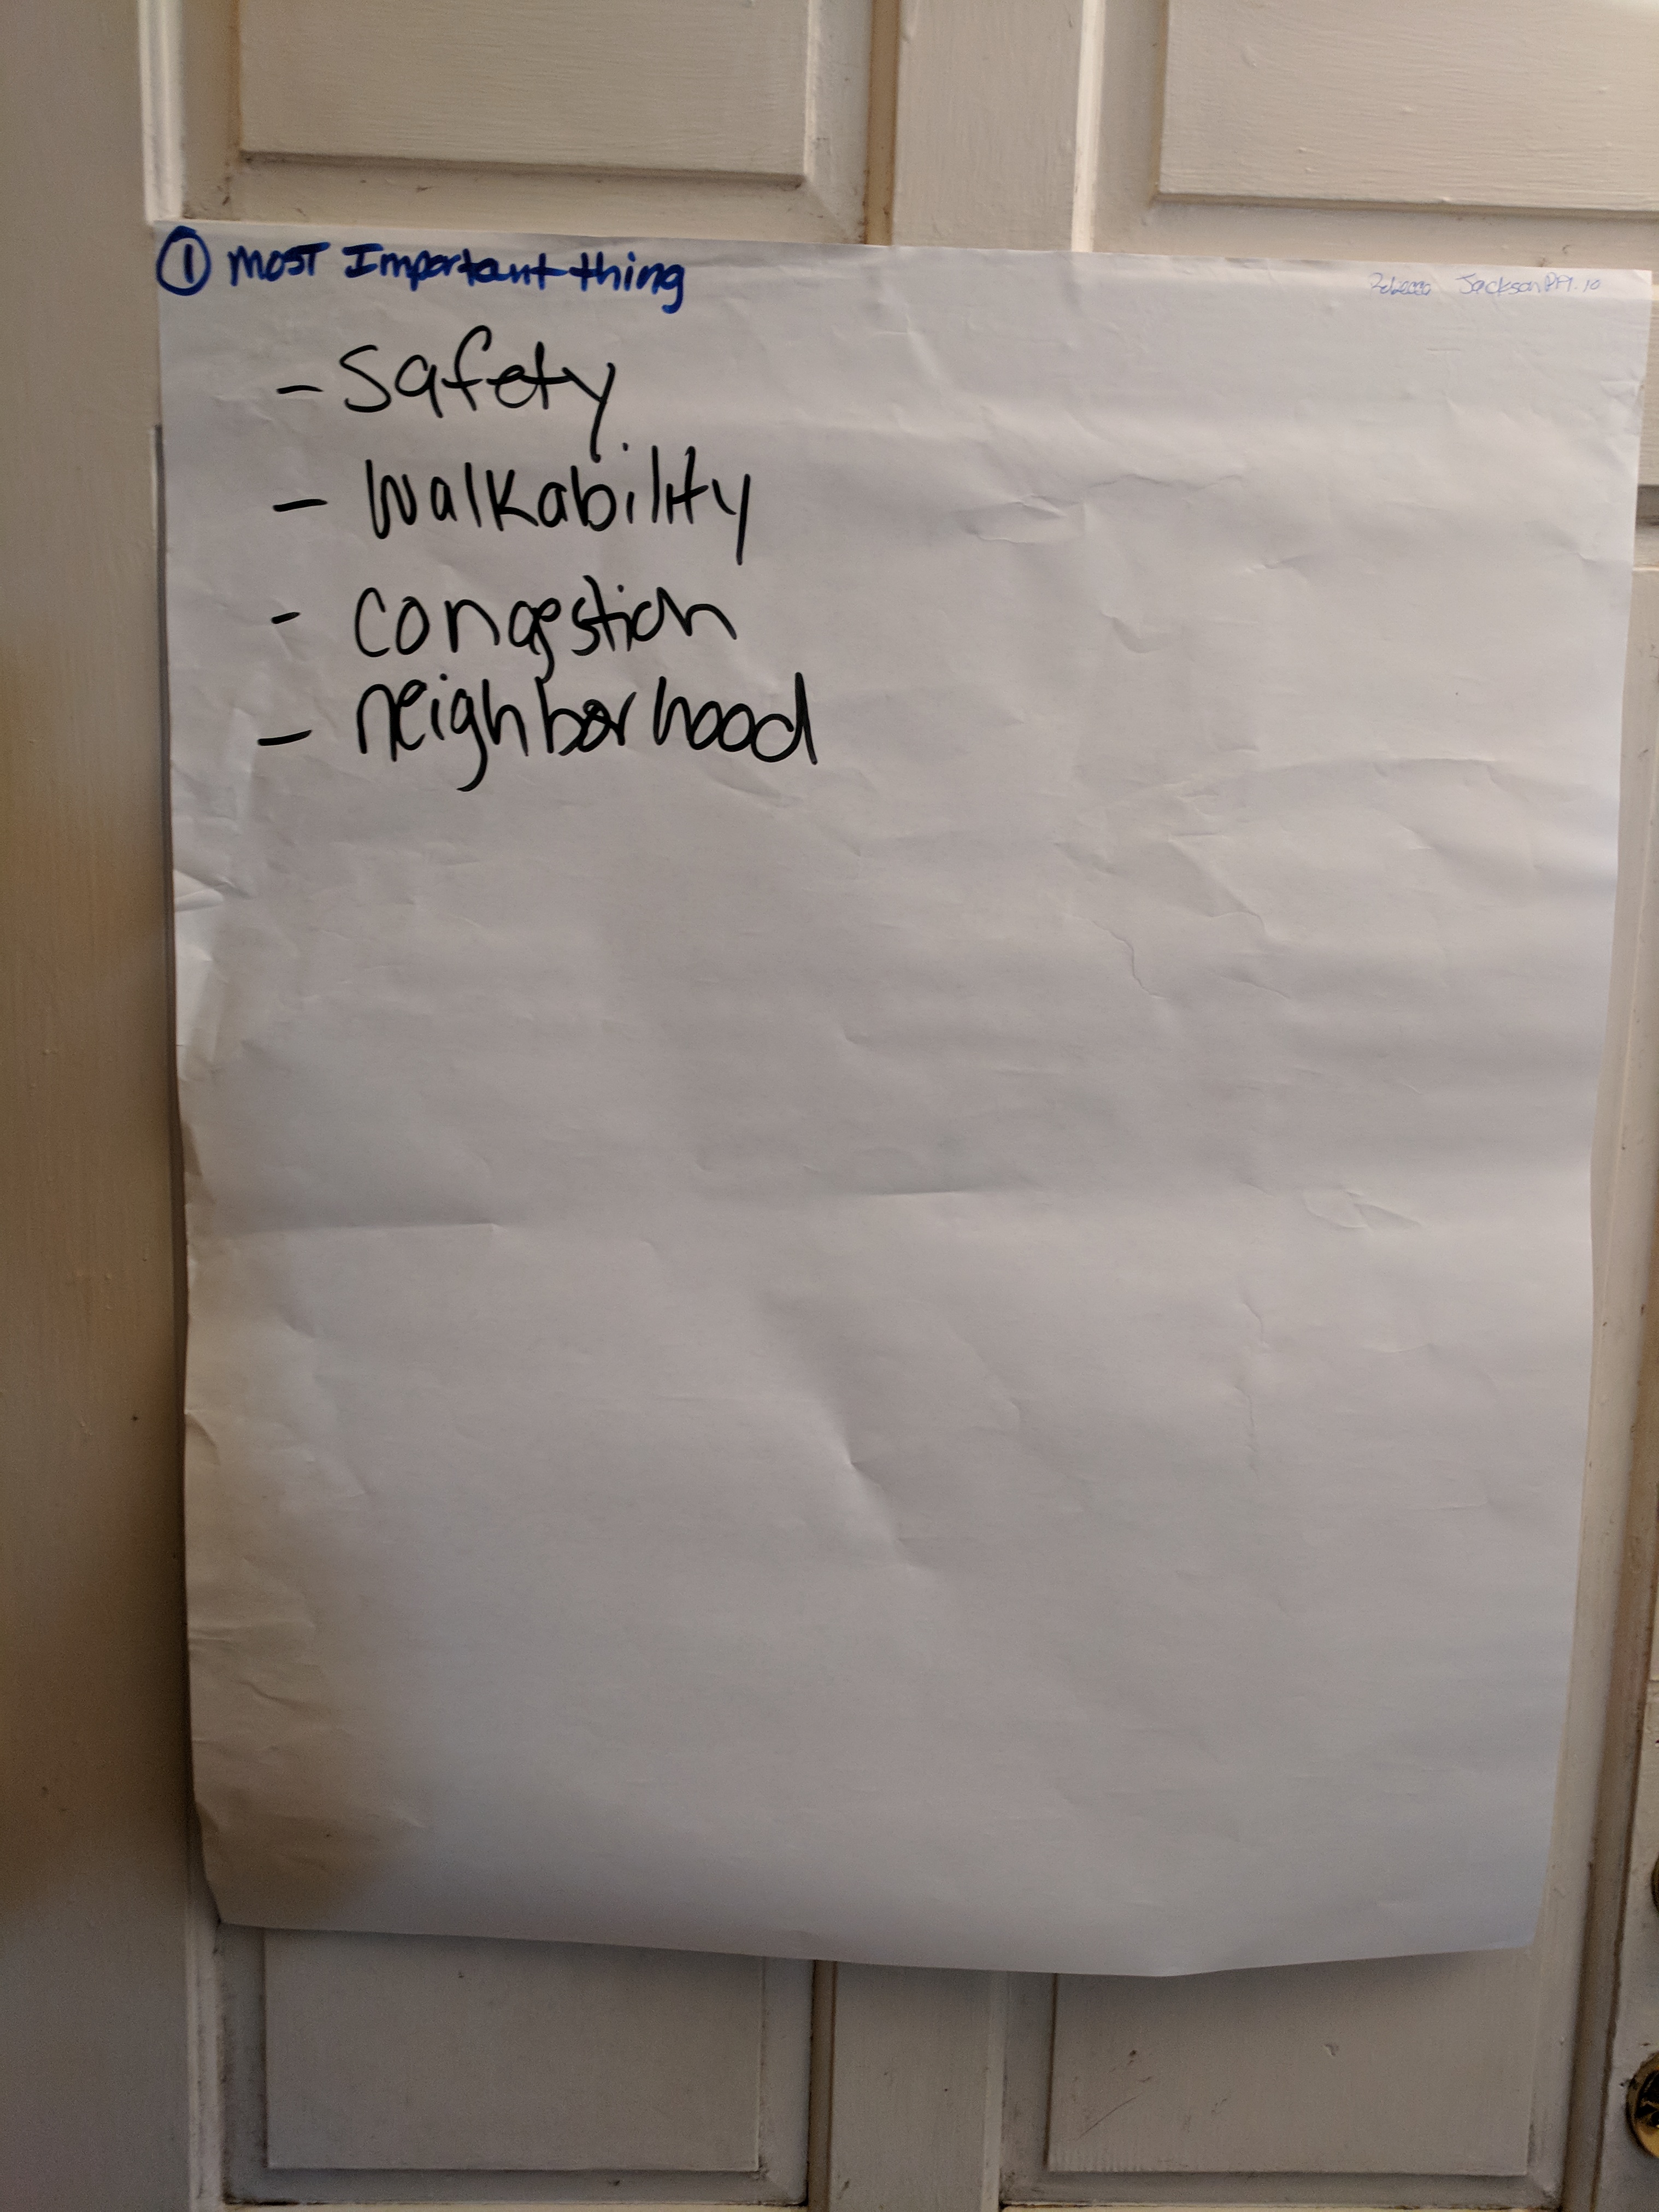 ① Most Important thing
Rebecca Jackson
- Safety
- Walkability
- Congestion
- neighborhood